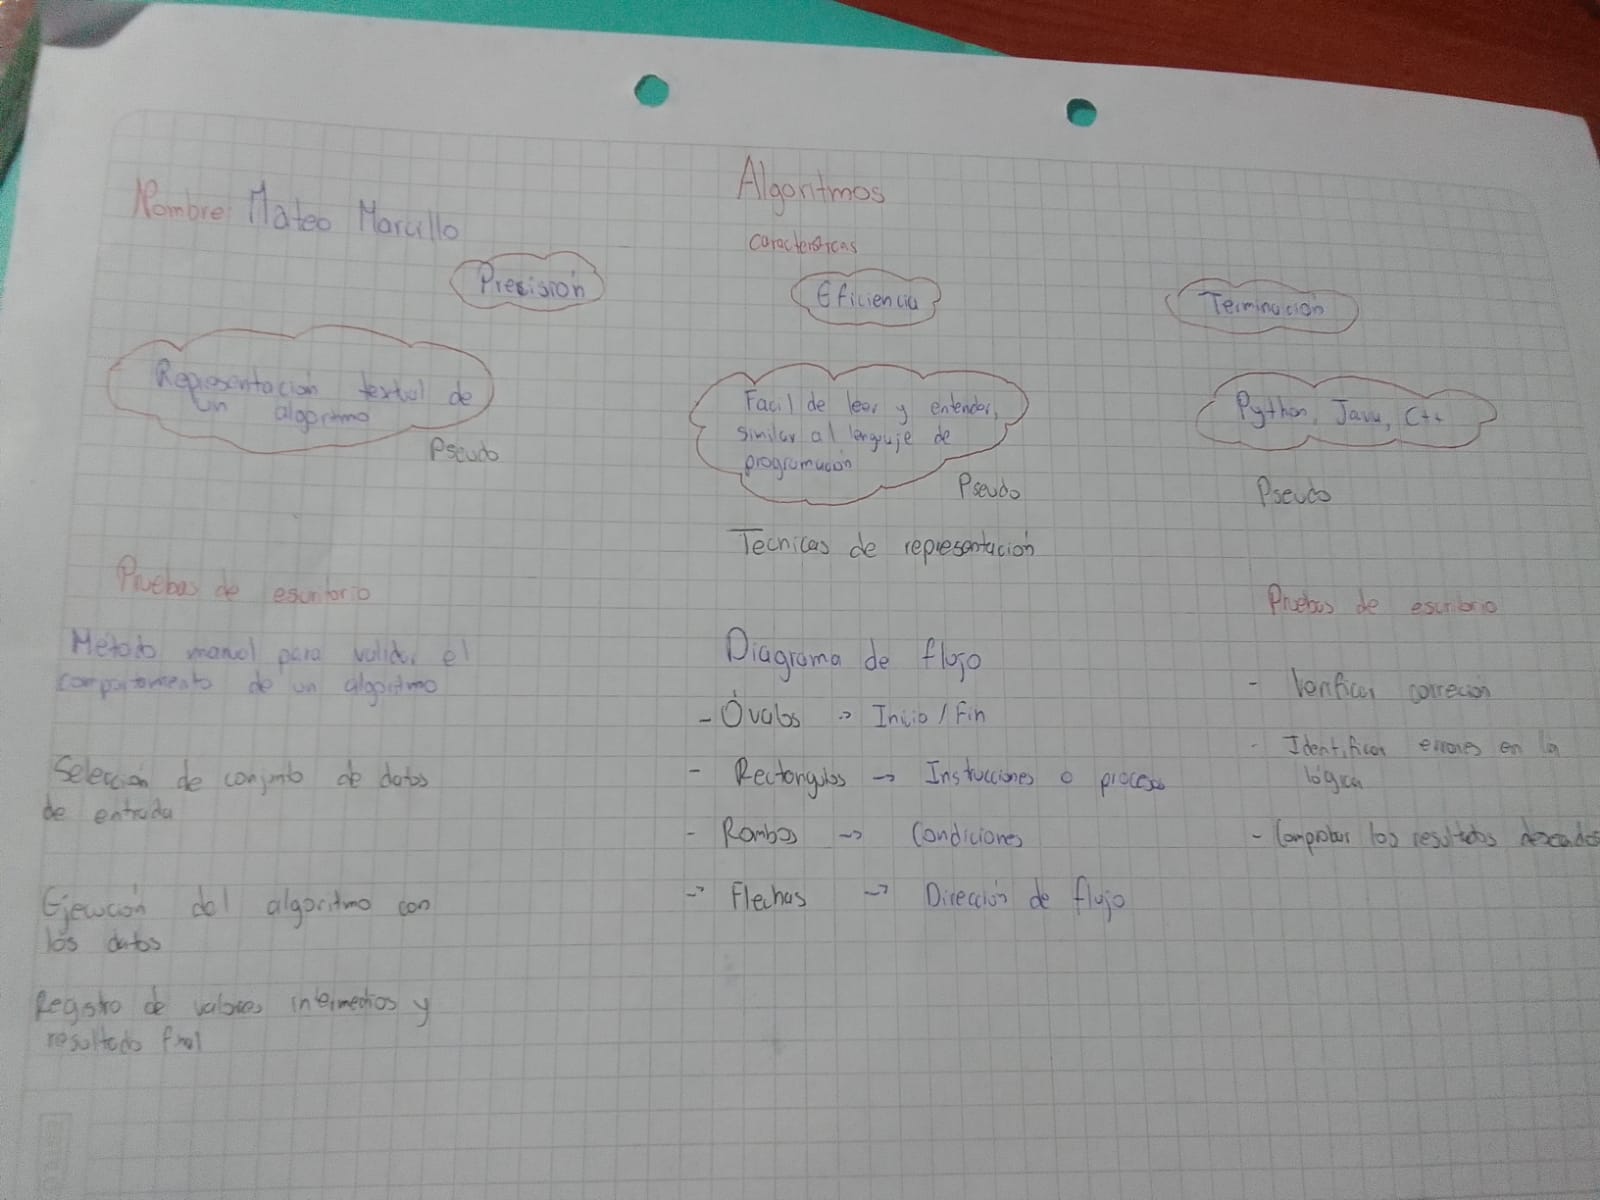 Algoritmos
Nombre: Mateo Marcillo
Caracteristicas
Precisión
Eficiencia
Terminación
Representación textual de
un algoritmo
Pseudo
Facil de leer y entender,
similar al lenguaje de
programación
Pseudo
Python, Java, C++
Pseudo
Tecnicas de representación
Pruebas de escritorio
Método manual para validar el
comportamento de un algoritmo
Selección de conjunto de datos
de entrada
Ejecución del algoritmo con
los datos
Registro de valores intermedios y
resultado final
Diagrama de flujo
- Óvalos -> Inicio / Fin
- Rectangulos -> Instucciones o procesos
- Rombos -> Condiciones
-> Flechas -> Dirección de flujo
Pruebas de escritorio
- Verificar correción
- Identificar errores en la
lógica
- Comprobar los resultados deseados